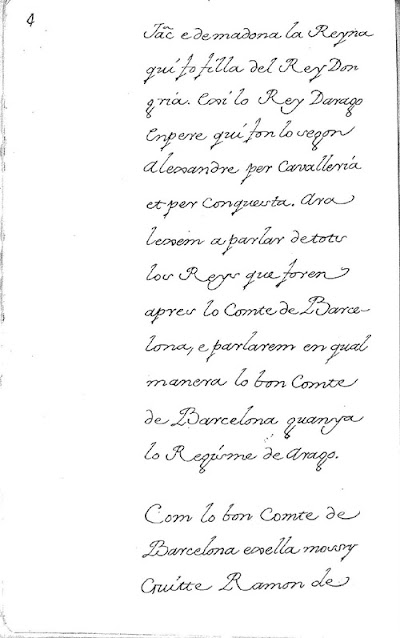 4
Jac̃ e demadona la Reyna
qui fo filla del Rey Don
gria. Cosi lo Rey Darago
Enpere qui fon lo segon
Alexandre per Cavalleria
et per Conquesta. Ara
lexem a parlar de tots
los Reys que foren
apres lo Comte de Barce-
lona, e parlarem en qual
manera lo bon Comte
de Barcelona guanya
lo Regisme de Arago.
Com lo bon Comte de
Barcelona exella mossry
Guitte Ramon de